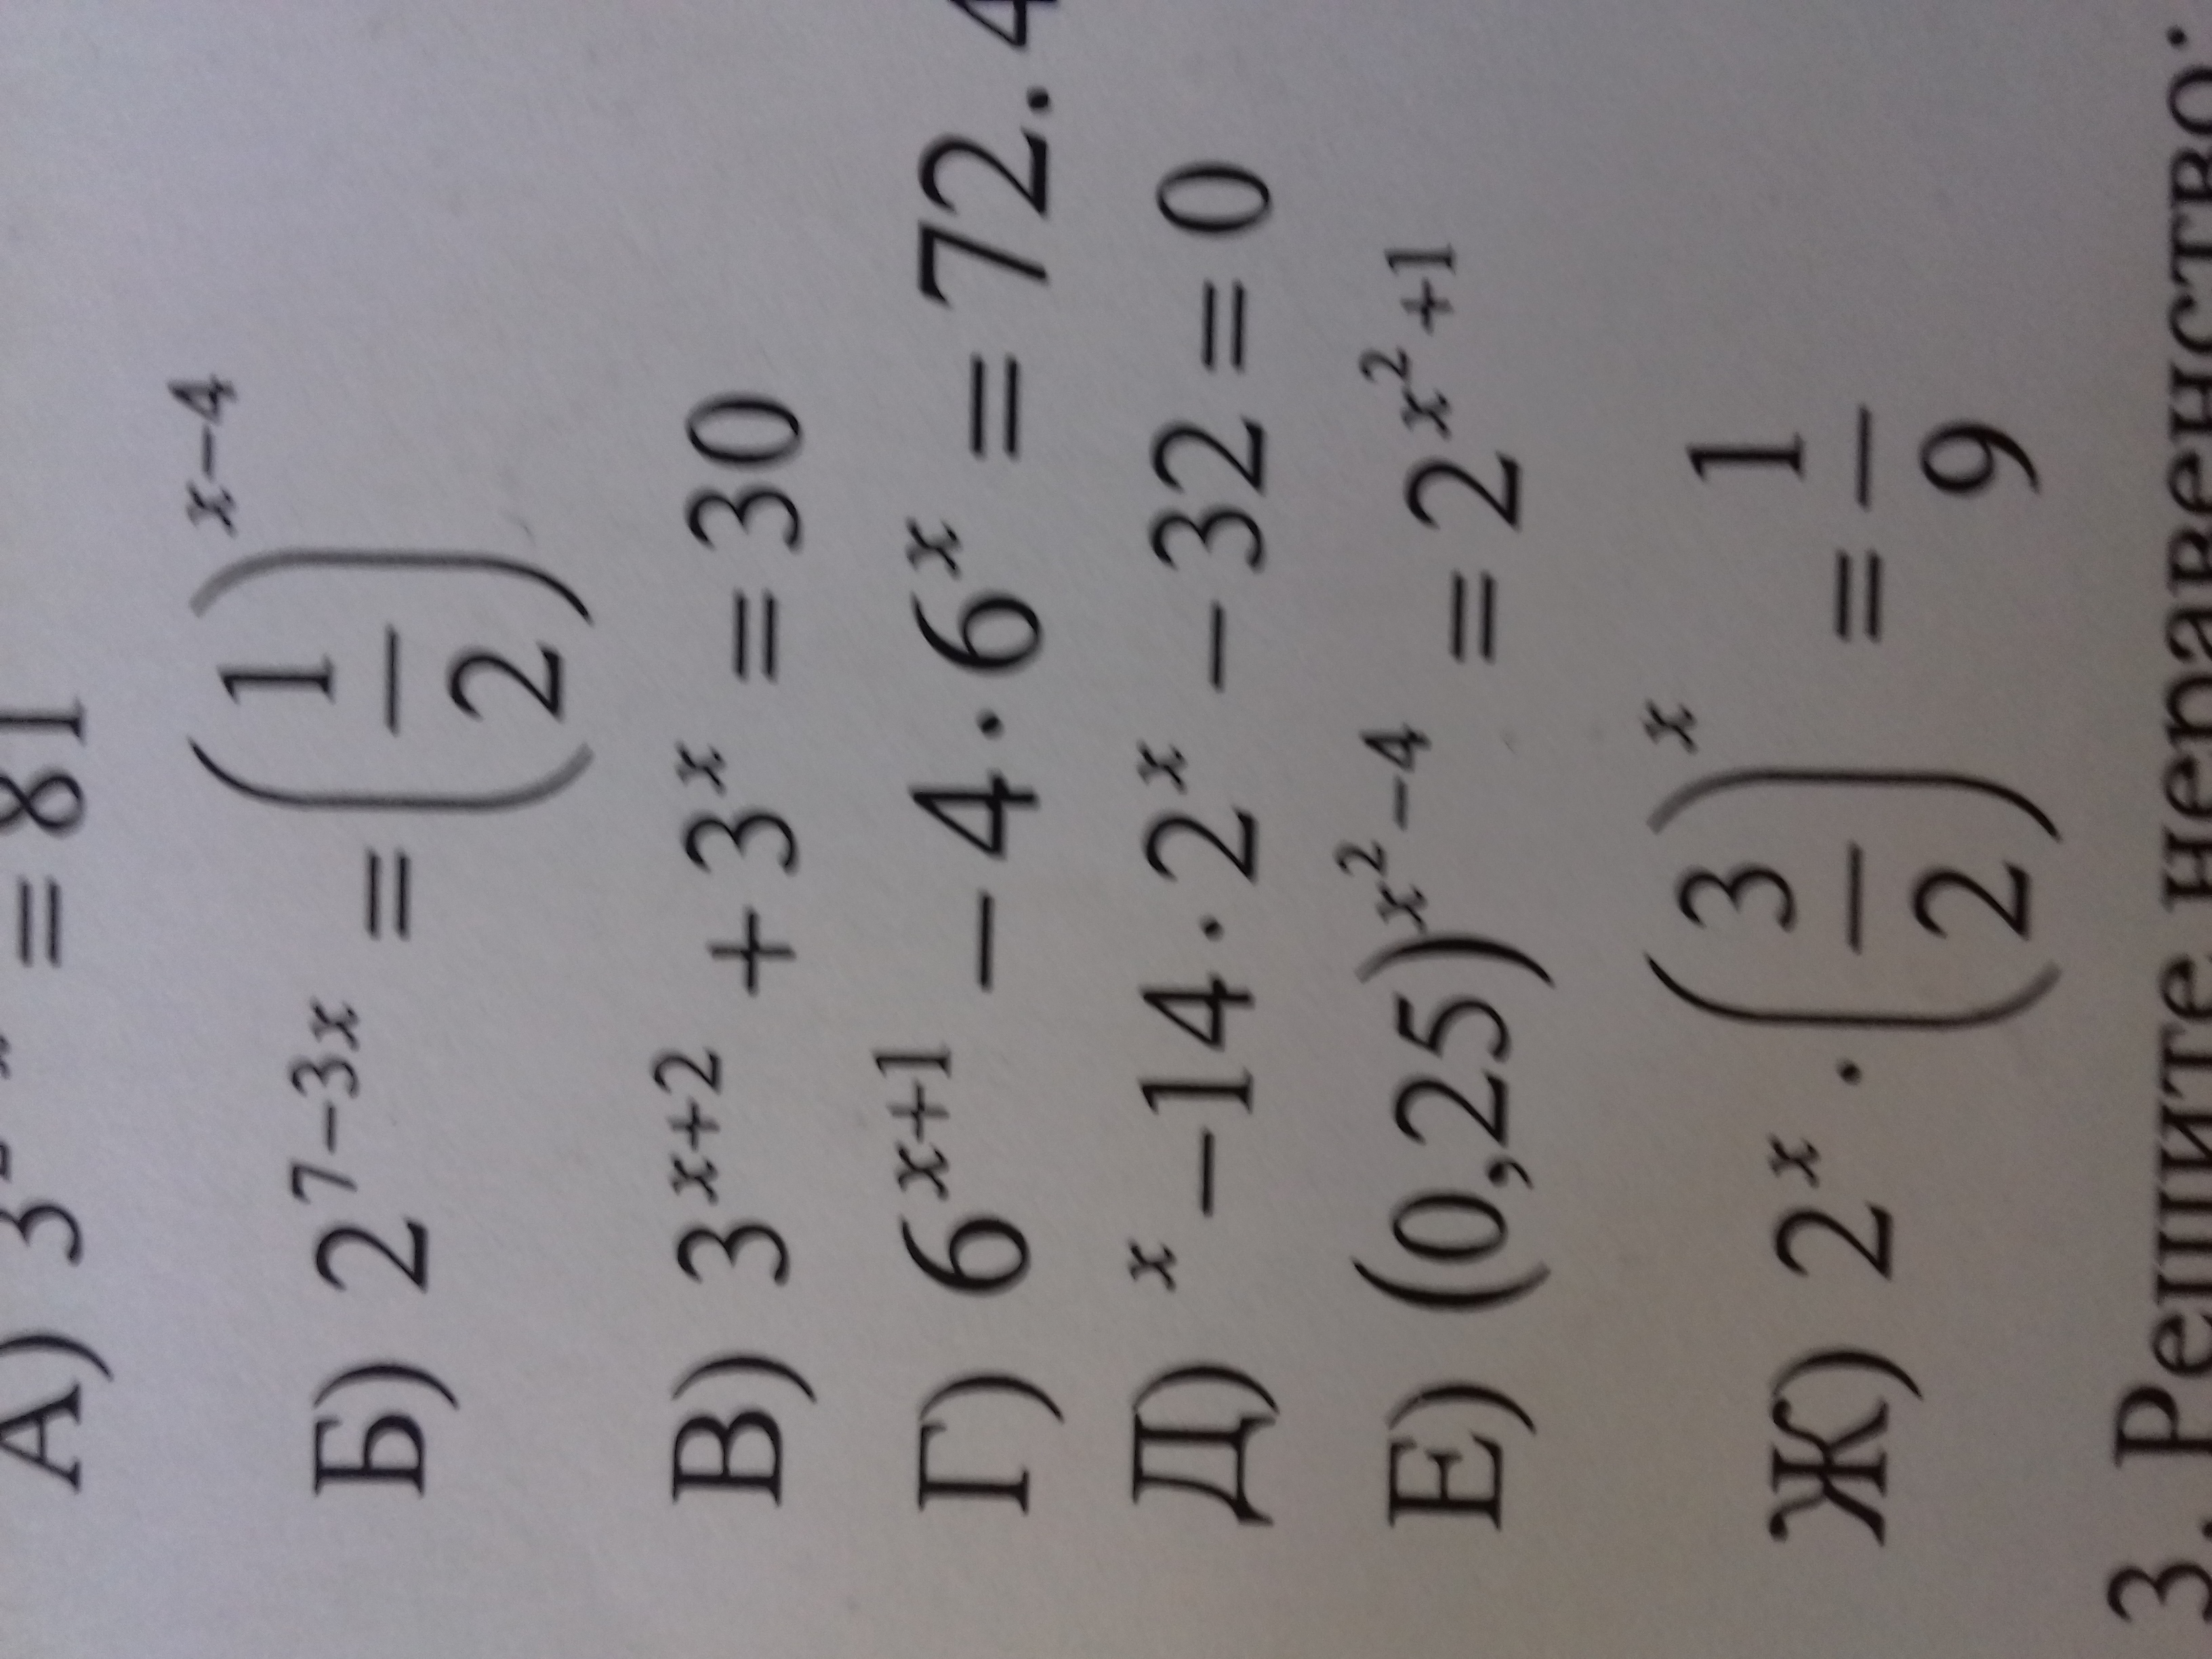 А) 3 = 81
Б) 2^{7−3x} = (1/2)^{x−4}
В) 3^{x+2} + 3^x = 30
Г) 6^{x+1} − 4·6^x = 72.
Д) ^x −14·2^x − 32 = 0
Е) (0,25)^{x^2−4} = 2^{x^2+1}
Ж) 2^x · (3/2)^x = 1/9
3. Решите неравенство: